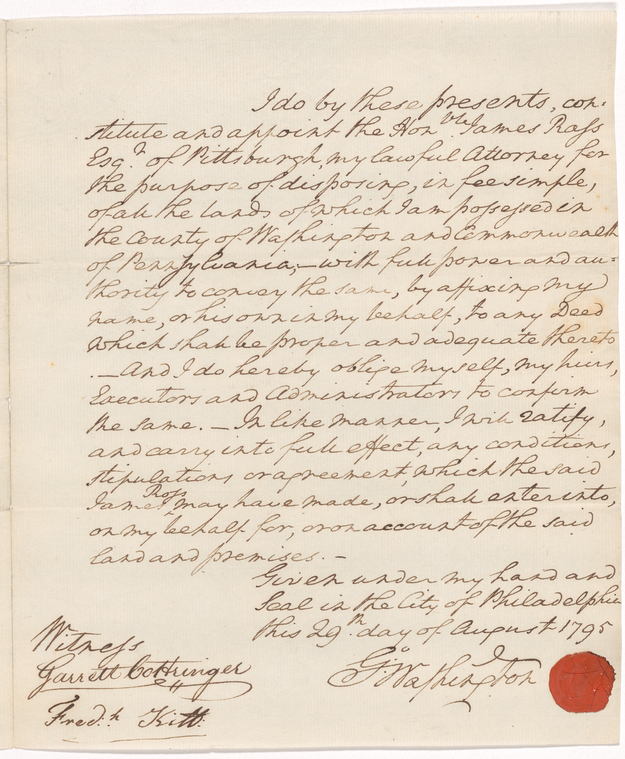 I do by these presents, con-
stitute and appoint the Honble. James Ross
Esqr. of Pittsburgh, my lawful Attorney for
the purpose of disposing, in fee simple,
of all the lands of which I am possessed in
the County of Washington and Commonwealth
of Pennsylvania,—with full power and au-
thority to convey the same, by affixing my
name, or his own in my behalf, to any Deed
which shall be proper and adequate thereto
.—And I do hereby oblige myself, my heirs,
Executors and Administrators to confirm
the same.—In like manner, I will ratify,
and carry into full effect, any conditions,
stipulations or agreement, which the said
James Ross may have made, or shall enter into,
on my behalf for, or on account of the said
land and premises.—
Given under my hand and
Seal in the City of Philadelphia
this 29th. day of August 1795
Go. Washington
Witness
Garrett Cottringer
Fredk. Kitt.